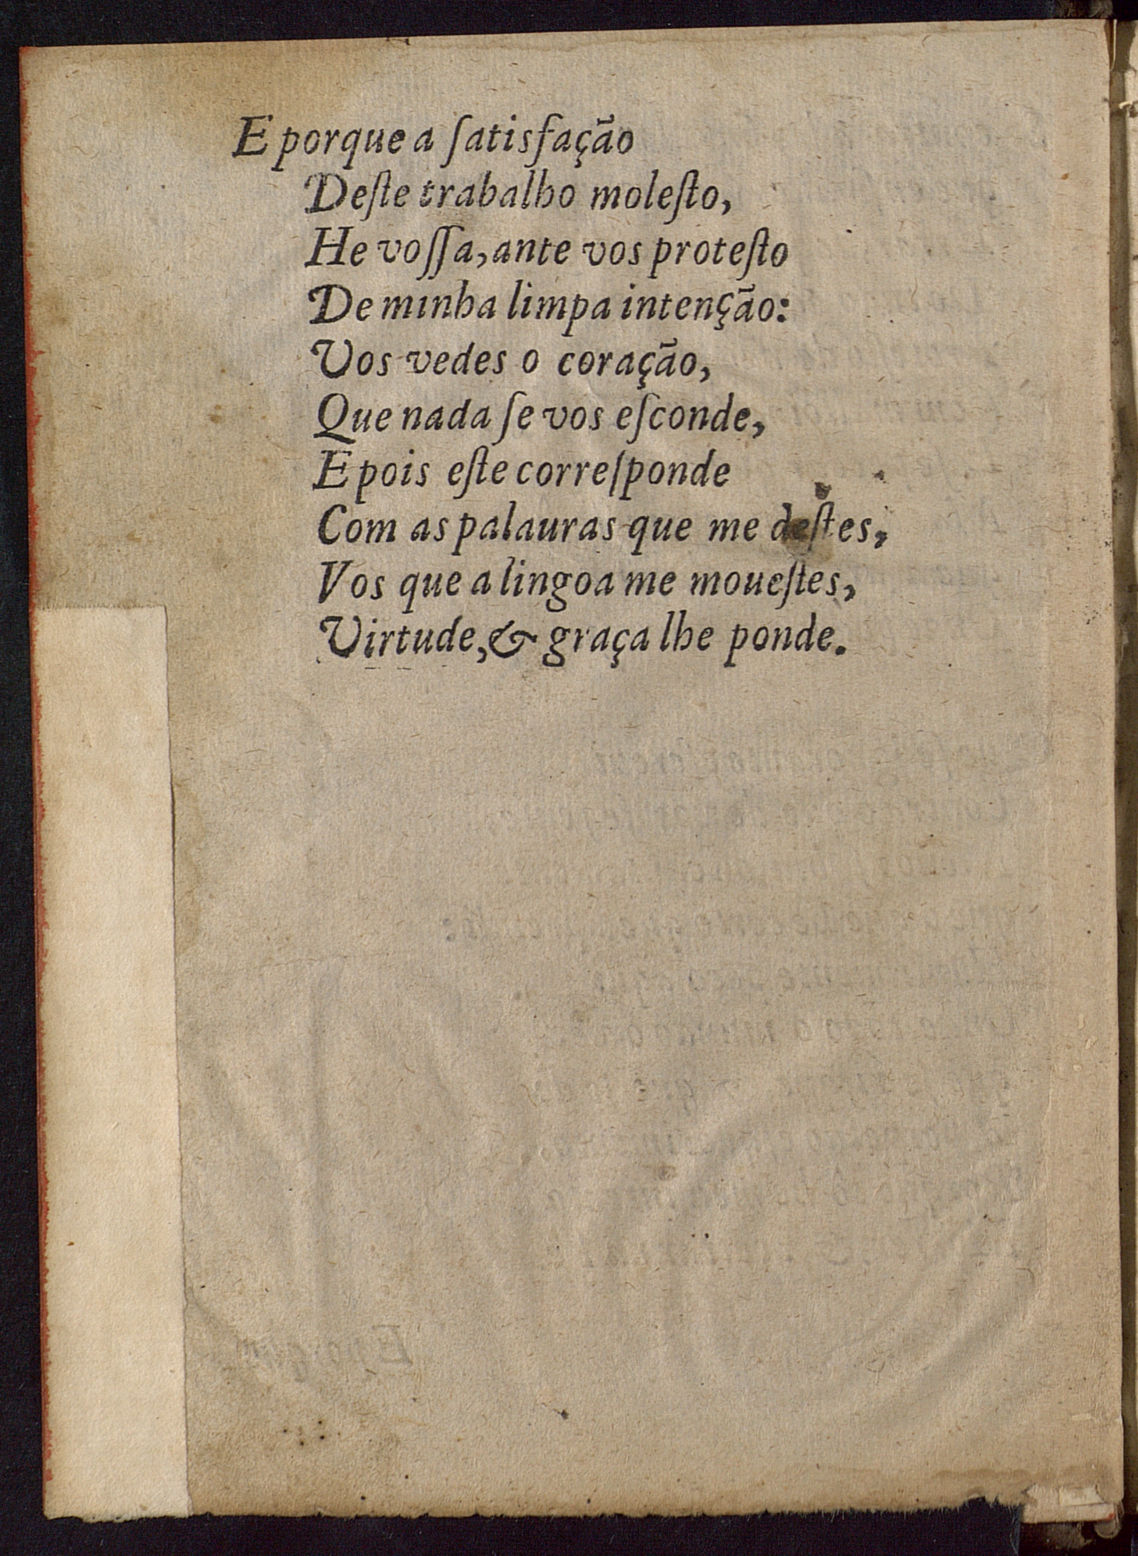 E porque a ſatisfação
Deſte trabalho moleſto,
He voſſa, ante vos proteſto
De minha limpa intenção:
Vos vedes o coração,
Que nada ſe vos eſconde,
E pois eſte correſponde
Com as palauras que me deſtes,
Vos que a lingoa me moueſtes,
Virtude, & graça lhe ponde.